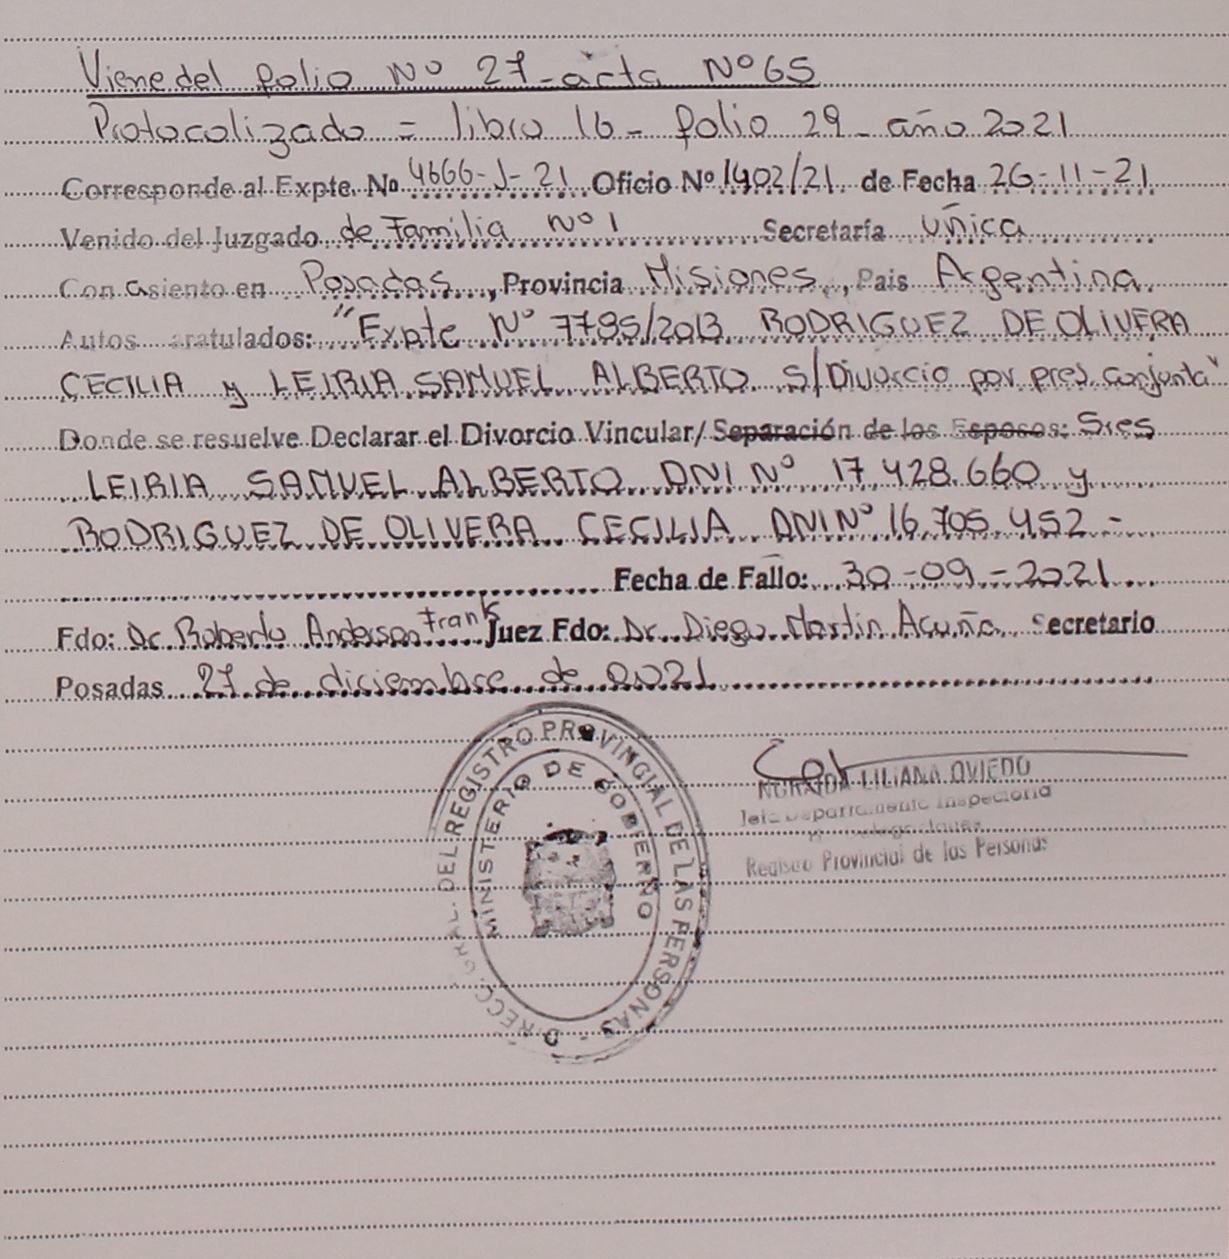 Viene del folio Nº 27 - acta Nº 65
Protocolizado = libro 16 - folio 29 - año 2021
Corresponde al Expte. Nº 4666-J-21 Oficio Nº 1402/21 de Fecha 26-11-21
Venido del Juzgado de Familia Nº 1 Secretaría única
Con asiento en Posadas, Provincia Misiones, Pais Argentina
Autos aratulados: "Expte Nº 7785/2013 RODRIGUEZ DE OLIVERA
CECILIA y LEIRIA SAMUEL ALBERTO S/Divorcio por pres. conjunta"
Donde se resuelve Declarar el Divorcio Vincular/ Separación de los Esposos: Sres
LEIRIA SAMUEL ALBERTO DNI Nº 17.428.660 y
RODRIGUEZ DE OLIVERA CECILIA DNI Nº 16.705.452 -
Fecha de Fallo: 30-09-2021
Fdo: Dr. Roberto Anderson Frank Juez Fdo: Dr. Diego Martin Acuña Secretario
Posadas 27 de diciembre de 2021
DIRECC. GRAL. DEL REGISTRO PROVINCIAL DE LAS PERSONAS
MINISTERIO DE GOBIERNO
LILIANA OVIEDO
Jefa Departamento Inspectoria
y Delegaciones
Registro Provincial de las Personas